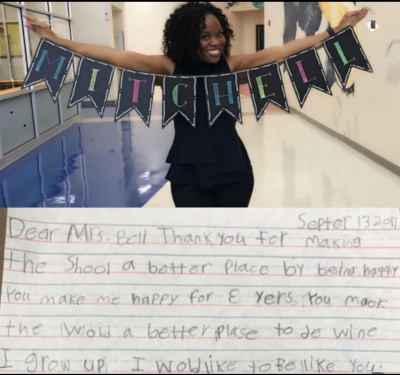 MITCHELL
Septer 13 201
Dear Mrs. Bell Thank you for making
the Shool a better place by being happy
You make me happy for 3 yers. You mack
the World a better plase to de wine
I grow up I wold like to Be like You.